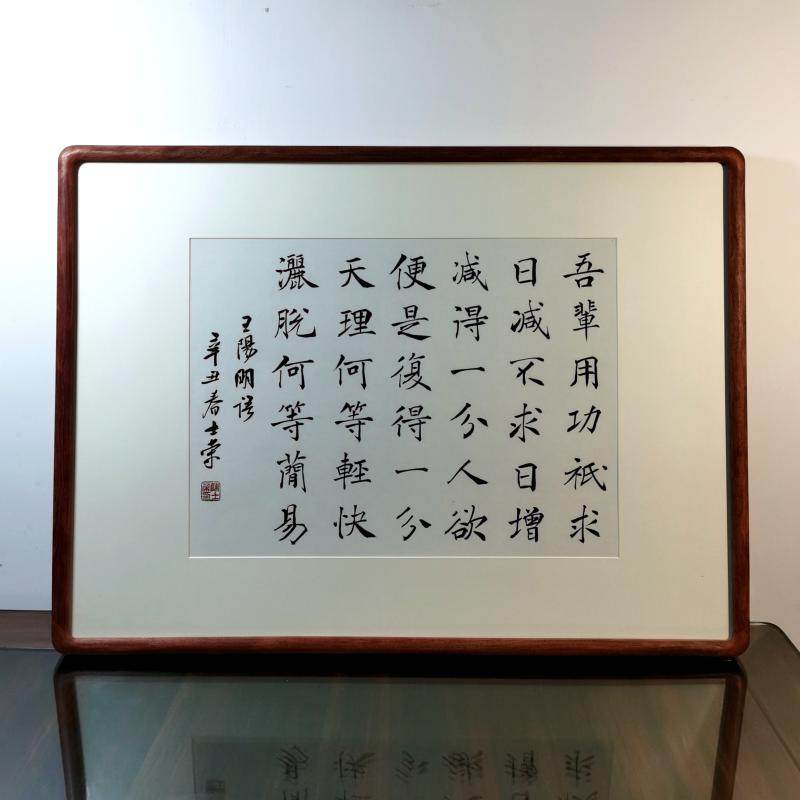 吾輩用功祇求
日減不求日增
減得一分人欲
便是復得一分
天理何等輕快
灑脫何等簡易
王陽明语
辛丑春士常